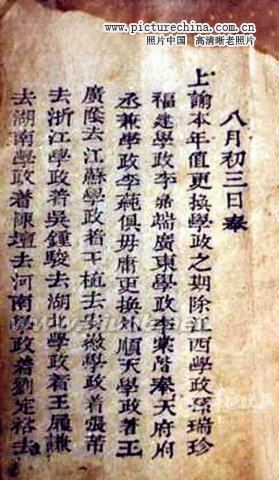 www.picturechina.com.cn
照片中国 高清晰老照片
八月初三日奉
上諭本年值更換學政之期除江西學政孫瑞珍
福建學政李嘉端廣東學政李棠階奉天府府
丞兼學政李俱毋庸更換順天學政著王
廣蔭去江蘇學政着王植去安徽學政着張芾
去浙江學政着吳鍾駿去湖北學政着王履謙
去湖南學政着陳壇去河南學政着劉定裕去